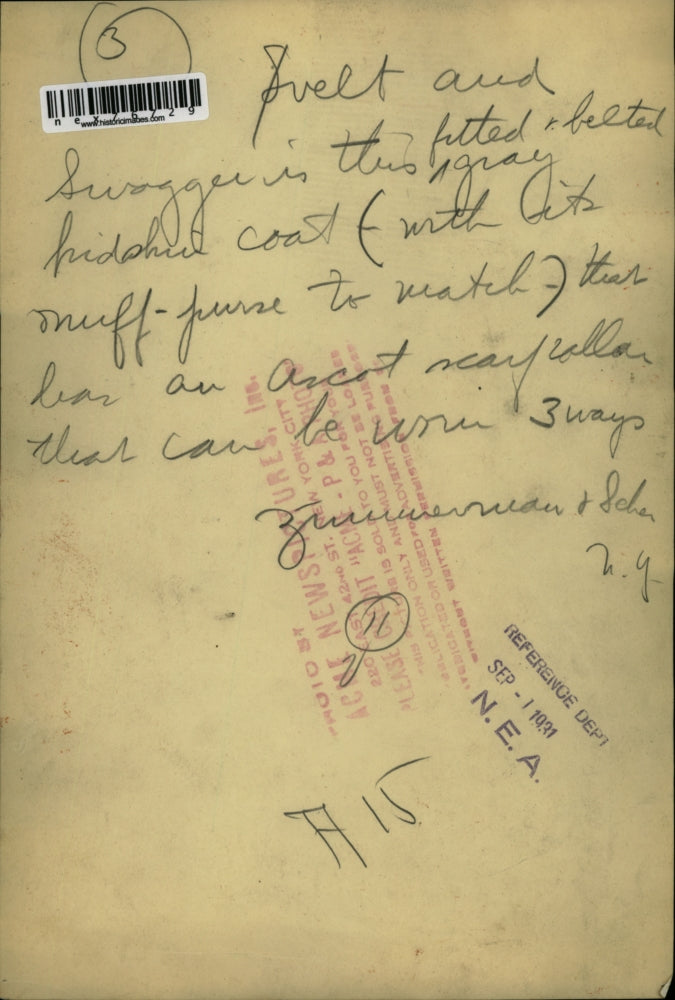 3
nex76729
www.historicimages.com
Svelt and
fitted & belted
Swagger is this gray
kidskin coat (with its
muff-purse to match) that
has an ascot scarf collar
that can be worn 3 ways
Zimmerman & Scher
N.Y.
11
PHOTO BY
ACME NEWSPICTURES, INC.
220 EAST 42ND ST. NEW YORK CITY
PLEASE CREDIT "ACME - P & A" PHOTO
THIS PICTURE IS SOLD TO YOU FOR YOUR
PUBLICATION ONLY AND MUST NOT BE
OR USED FOR ADVERTISING PURPOSES
WITHOUT WRITTEN PERMISSION
REFERENCE DEPT
SEP - 1 1931
N. E. A.
A 15